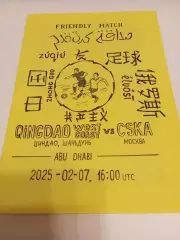 FRIENDLY MATCH
zúqiú 友 足球
中国
ZHŌNG GUÓ
俄罗斯
èluósī
共产主义
QINGDAO WEST COAST vs CSKA
ЦИНДАО, ШАНЬДУНЬ МОСКВА
ABU DHABI
2025-02-07, 16:00 UTC